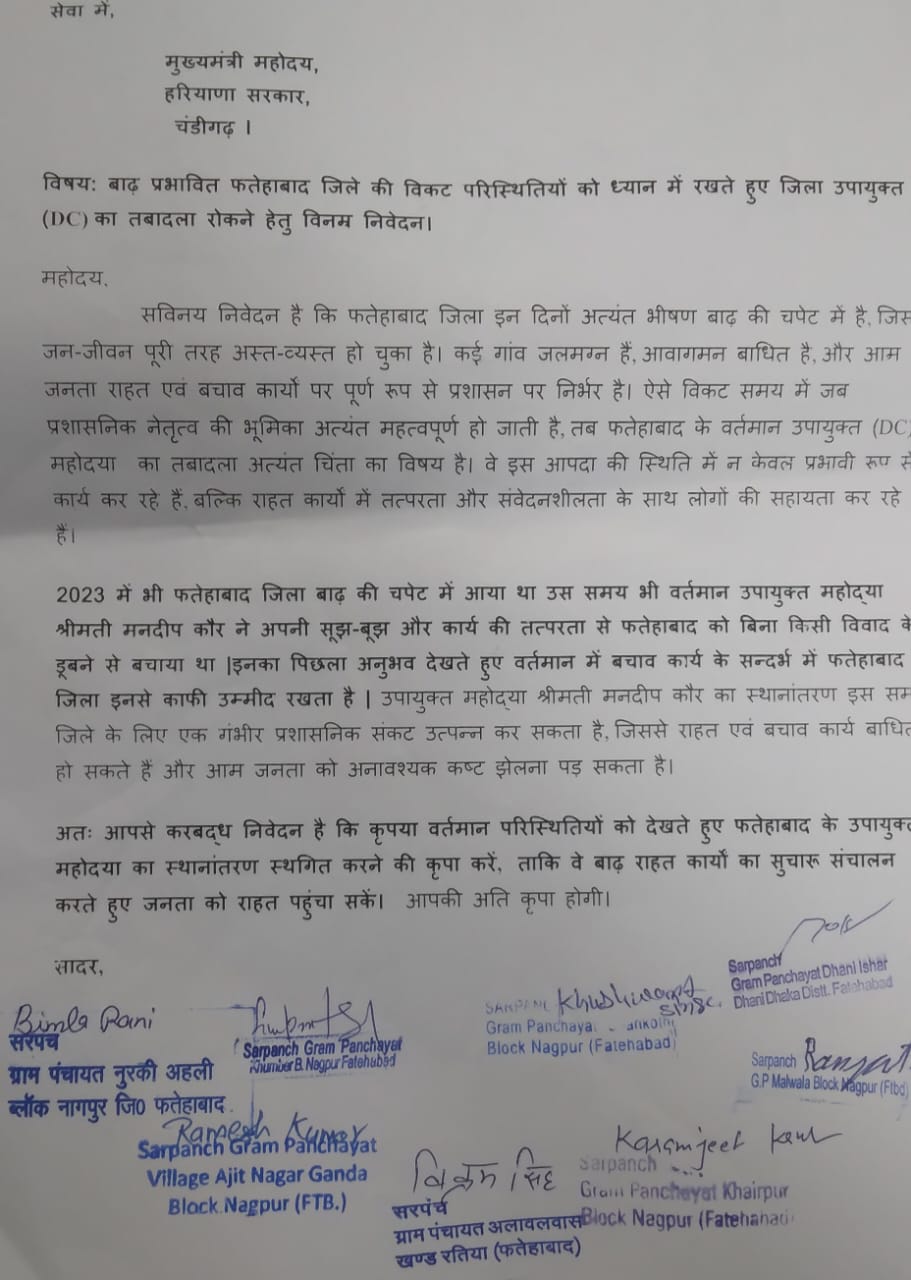 सेवा में,
मुख्यमंत्री महोदय,
हरियाणा सरकार,
चंडीगढ़ ।
विषय: बाढ़ प्रभावित फतेहाबाद जिले की विकट परिस्थितियों को ध्यान में रखते हुए जिला उपायुक्त
(DC) का तबादला रोकने हेतु विनम्र निवेदन।
महोदय,
सविनय निवेदन है कि फतेहाबाद जिला इन दिनों अत्यंत भीषण बाढ़ की चपेट में है, जिस
जन-जीवन पूरी तरह अस्त-व्यस्त हो चुका है। कई गांव जलमग्न हैं, आवागमन बाधित है, और आम
जनता राहत एवं बचाव कार्यों पर पूर्ण रूप से प्रशासन पर निर्भर है। ऐसे विकट समय में जब
प्रशासनिक नेतृत्व की भूमिका अत्यंत महत्वपूर्ण हो जाती है, तब फतेहाबाद के वर्तमान उपायुक्त (DC)
महोदया का तबादला अत्यंत चिंता का विषय है। वे इस आपदा की स्थिति में न केवल प्रभावी रूप से
कार्य कर रहे हैं, बल्कि राहत कार्यों में तत्परता और संवेदनशीलता के साथ लोगों की सहायता कर रहे
हैं।
2023 में भी फतेहाबाद जिला बाढ़ की चपेट में आया था उस समय भी वर्तमान उपायुक्त महोद्या
श्रीमती मनदीप कौर ने अपनी सूझ-बूझ और कार्य की तत्परता से फतेहाबाद को बिना किसी विवाद के
डूबने से बचाया था |इनका पिछला अनुभव देखते हुए वर्तमान में बचाव कार्य के सन्दर्भ में फतेहाबाद
जिला इनसे काफी उम्मीद रखता है | उपायुक्त महोद्या श्रीमती मनदीप कौर का स्थानांतरण इस सम
जिले के लिए एक गंभीर प्रशासनिक संकट उत्पन्न कर सकता है, जिससे राहत एवं बचाव कार्य बाधित
हो सकते हैं और आम जनता को अनावश्यक कष्ट झेलना पड़ सकता है।
अतः आपसे करबद्ध निवेदन है कि कृपया वर्तमान परिस्थितियों को देखते हुए फतेहाबाद के उपायुक्त
महोदया का स्थानांतरण स्थगित करने की कृपा करें, ताकि वे बाढ़ राहत कार्यों का सुचारू संचालन
करते हुए जनता को राहत पहुंचा सकें। आपकी अति कृपा होगी।
सादर,
Sarpanch
Gram Panchayat Dhani Ishar
Dhani Dhaka Distt. Fatehabad
Bimla Rani
सरपंच
ग्राम पंचायत नुरकी अहली
ब्लॉक नागपुर जि0 फतेहाबाद
Sarpanch Gram Panchayat
Khumber B. Nagpur Fatehabad
Gram Panchayat
Block Nagpur (Fatehabad)
Sarpanch
G.P Malwala Block Nagpur (Ftbd)
Ramesh Kumar
Sarpanch Gram Panchayat
Village Ajit Nagar Ganda
Block Nagpur (FTB.)
विक्रम सिंह
सरपंच
ग्राम पंचायत अलावलवास
खण्ड रतिया (फतेहाबाद)
Karamjeet Kaur
Sarpanch
Gram Panchayat Khairpur
Block Nagpur (Fatehabad)